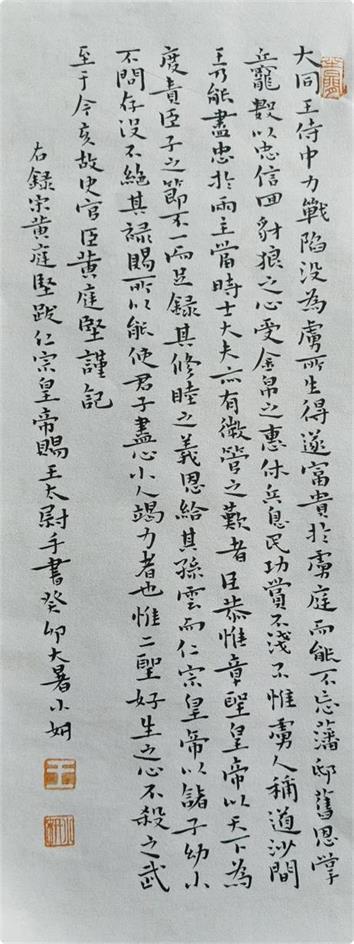 大同王侍中力戰陷没為虜所生得遂富貴於虜庭而能不忘藩邸舊恩掌
兵寵數以忠信回豺狼之心受金帛之惠休兵息民功賞不淺不惟虜人稱道沙間
王乃能盡忠於兩主當時士大夫亦有微管之歎者臣恭惟章聖皇帝以天下為
度責臣子之節不一而足録其修睦之義恩給其孫雲而仁宗皇帝以諸子幼小
不問存没不絶其禄賜所以能使君子盡心小人竭力者也惟二聖好生之心不殺之武
至于今亥故史官臣黄庭堅謹記
右録宋黄庭堅跋仁宗皇帝賜王太尉手書癸卯大暑小妍
王